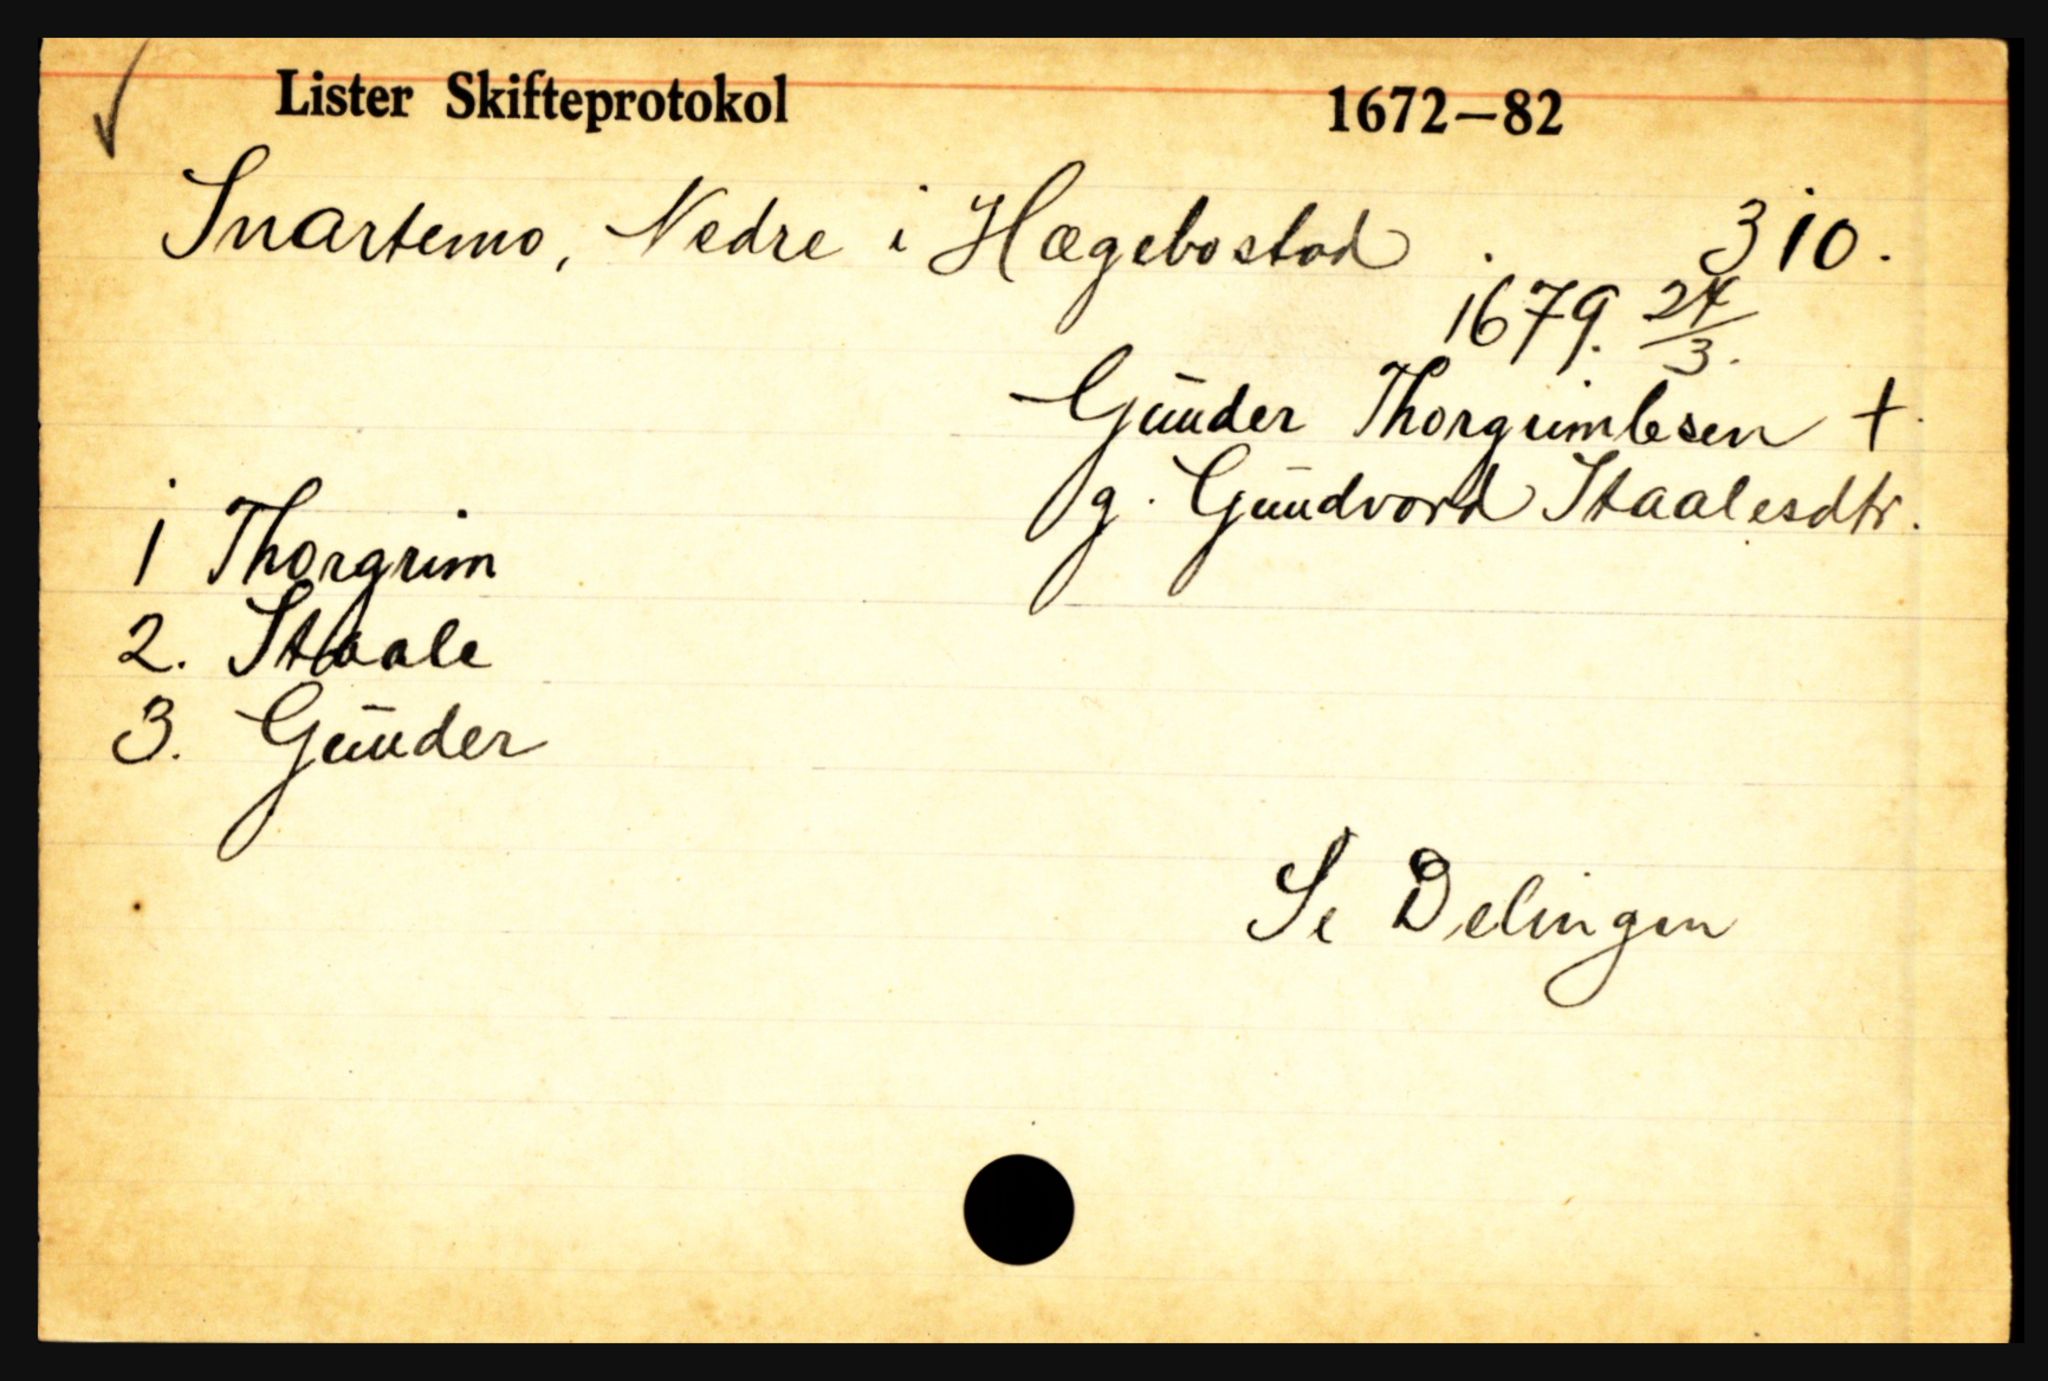 Lister Skifteprotokol 1672—82
Snartemo, Nedre i Hægebostad . 310.
1679. 24/3.
Gūnder Thorgrimbsen +
g. Gūndvord Staalesdtr.
1 Thorgrim
2. Staale
3. Gūnder
Se Delingen